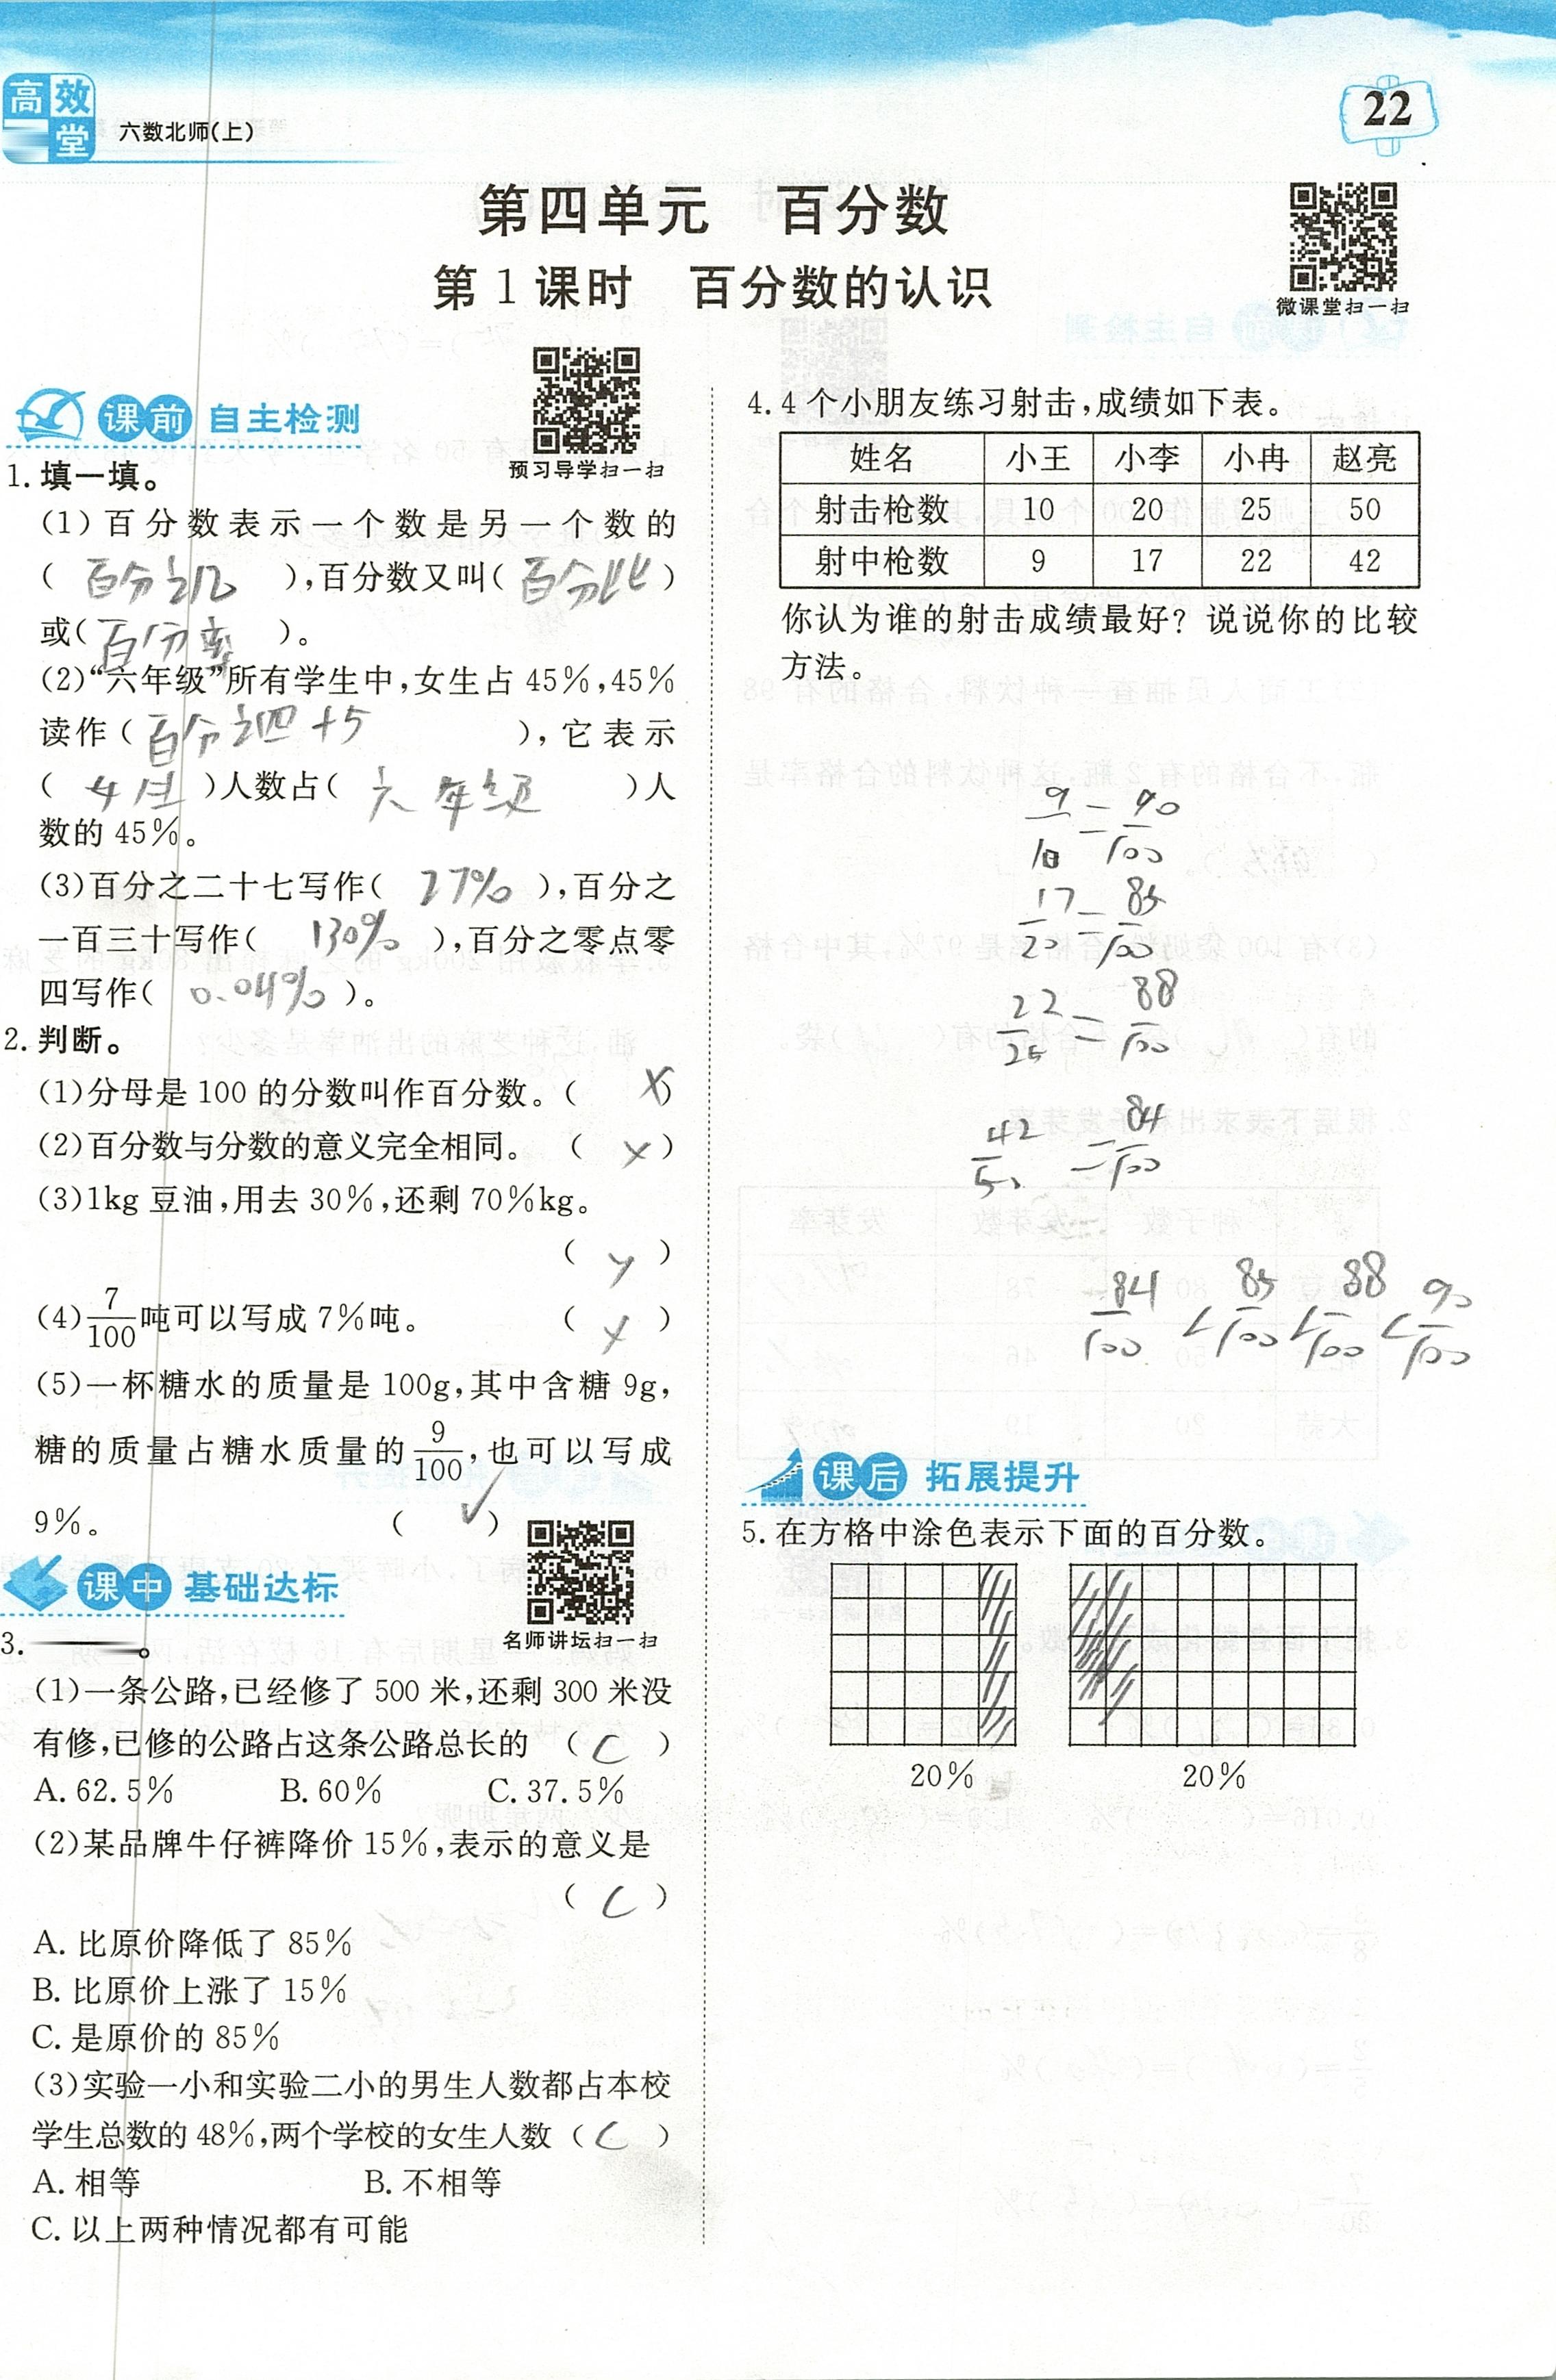 高效
堂
六数北师(上)
22
第四单元 百分数
第1课时 百分数的认识
微课堂扫一扫
课前 自主检测
预习导学扫一扫
1.填一填。
(1)百分数表示一个数是另一个数的
(百分之几),百分数又叫(百分比)
或(百分率)。
(2)“六年级”所有学生中,女生占45%,45%
读作(百分之四十5),它表示
( )人数占(六年级)人
数的45%。
(3)百分之二十七写作(27%),百分之
一百三十写作(130%),百分之零点零
四写作(0.04%)。
2.判断。
(1)分母是100的分数叫作百分数。(×)
(2)百分数与分数的意义完全相同。(×)
(3)1kg豆油,用去30%,还剩70%kg。
(×)
(4)7/100吨可以写成7%吨。(×)
(5)一杯糖水的质量是100g,其中含糖9g,
糖的质量占糖水质量的9/100,也可以写成
9%。(✓)
课中 基础达标
名师讲坛扫一扫
3.
(1)一条公路,已经修了500米,还剩300米没
有修,已修的公路占这条公路总长的(C)
A.62.5% B.60% C.37.5%
(2)某品牌牛仔裤降价15%,表示的意义是
(C)
A.比原价降低了85%
B.比原价上涨了15%
C.是原价的85%
(3)实验一小和实验二小的男生人数都占本校
学生总数的48%,两个学校的女生人数(C)
A.相等 B.不相等
C.以上两种情况都有可能
4.4个小朋友练习射击,成绩如下表。
姓名 小王 小李 小冉 赵亮
射击枪数 10 20 25 50
射中枪数 9 17 22 42
你认为谁的射击成绩最好?说说你的比较
方法。
9/10=90/100
17/20=85/100
22/25=88/100
42/50=84/100
84/100<85/100<88/100<90/100
课后 拓展提升
5.在方格中涂色表示下面的百分数。
20% 20%